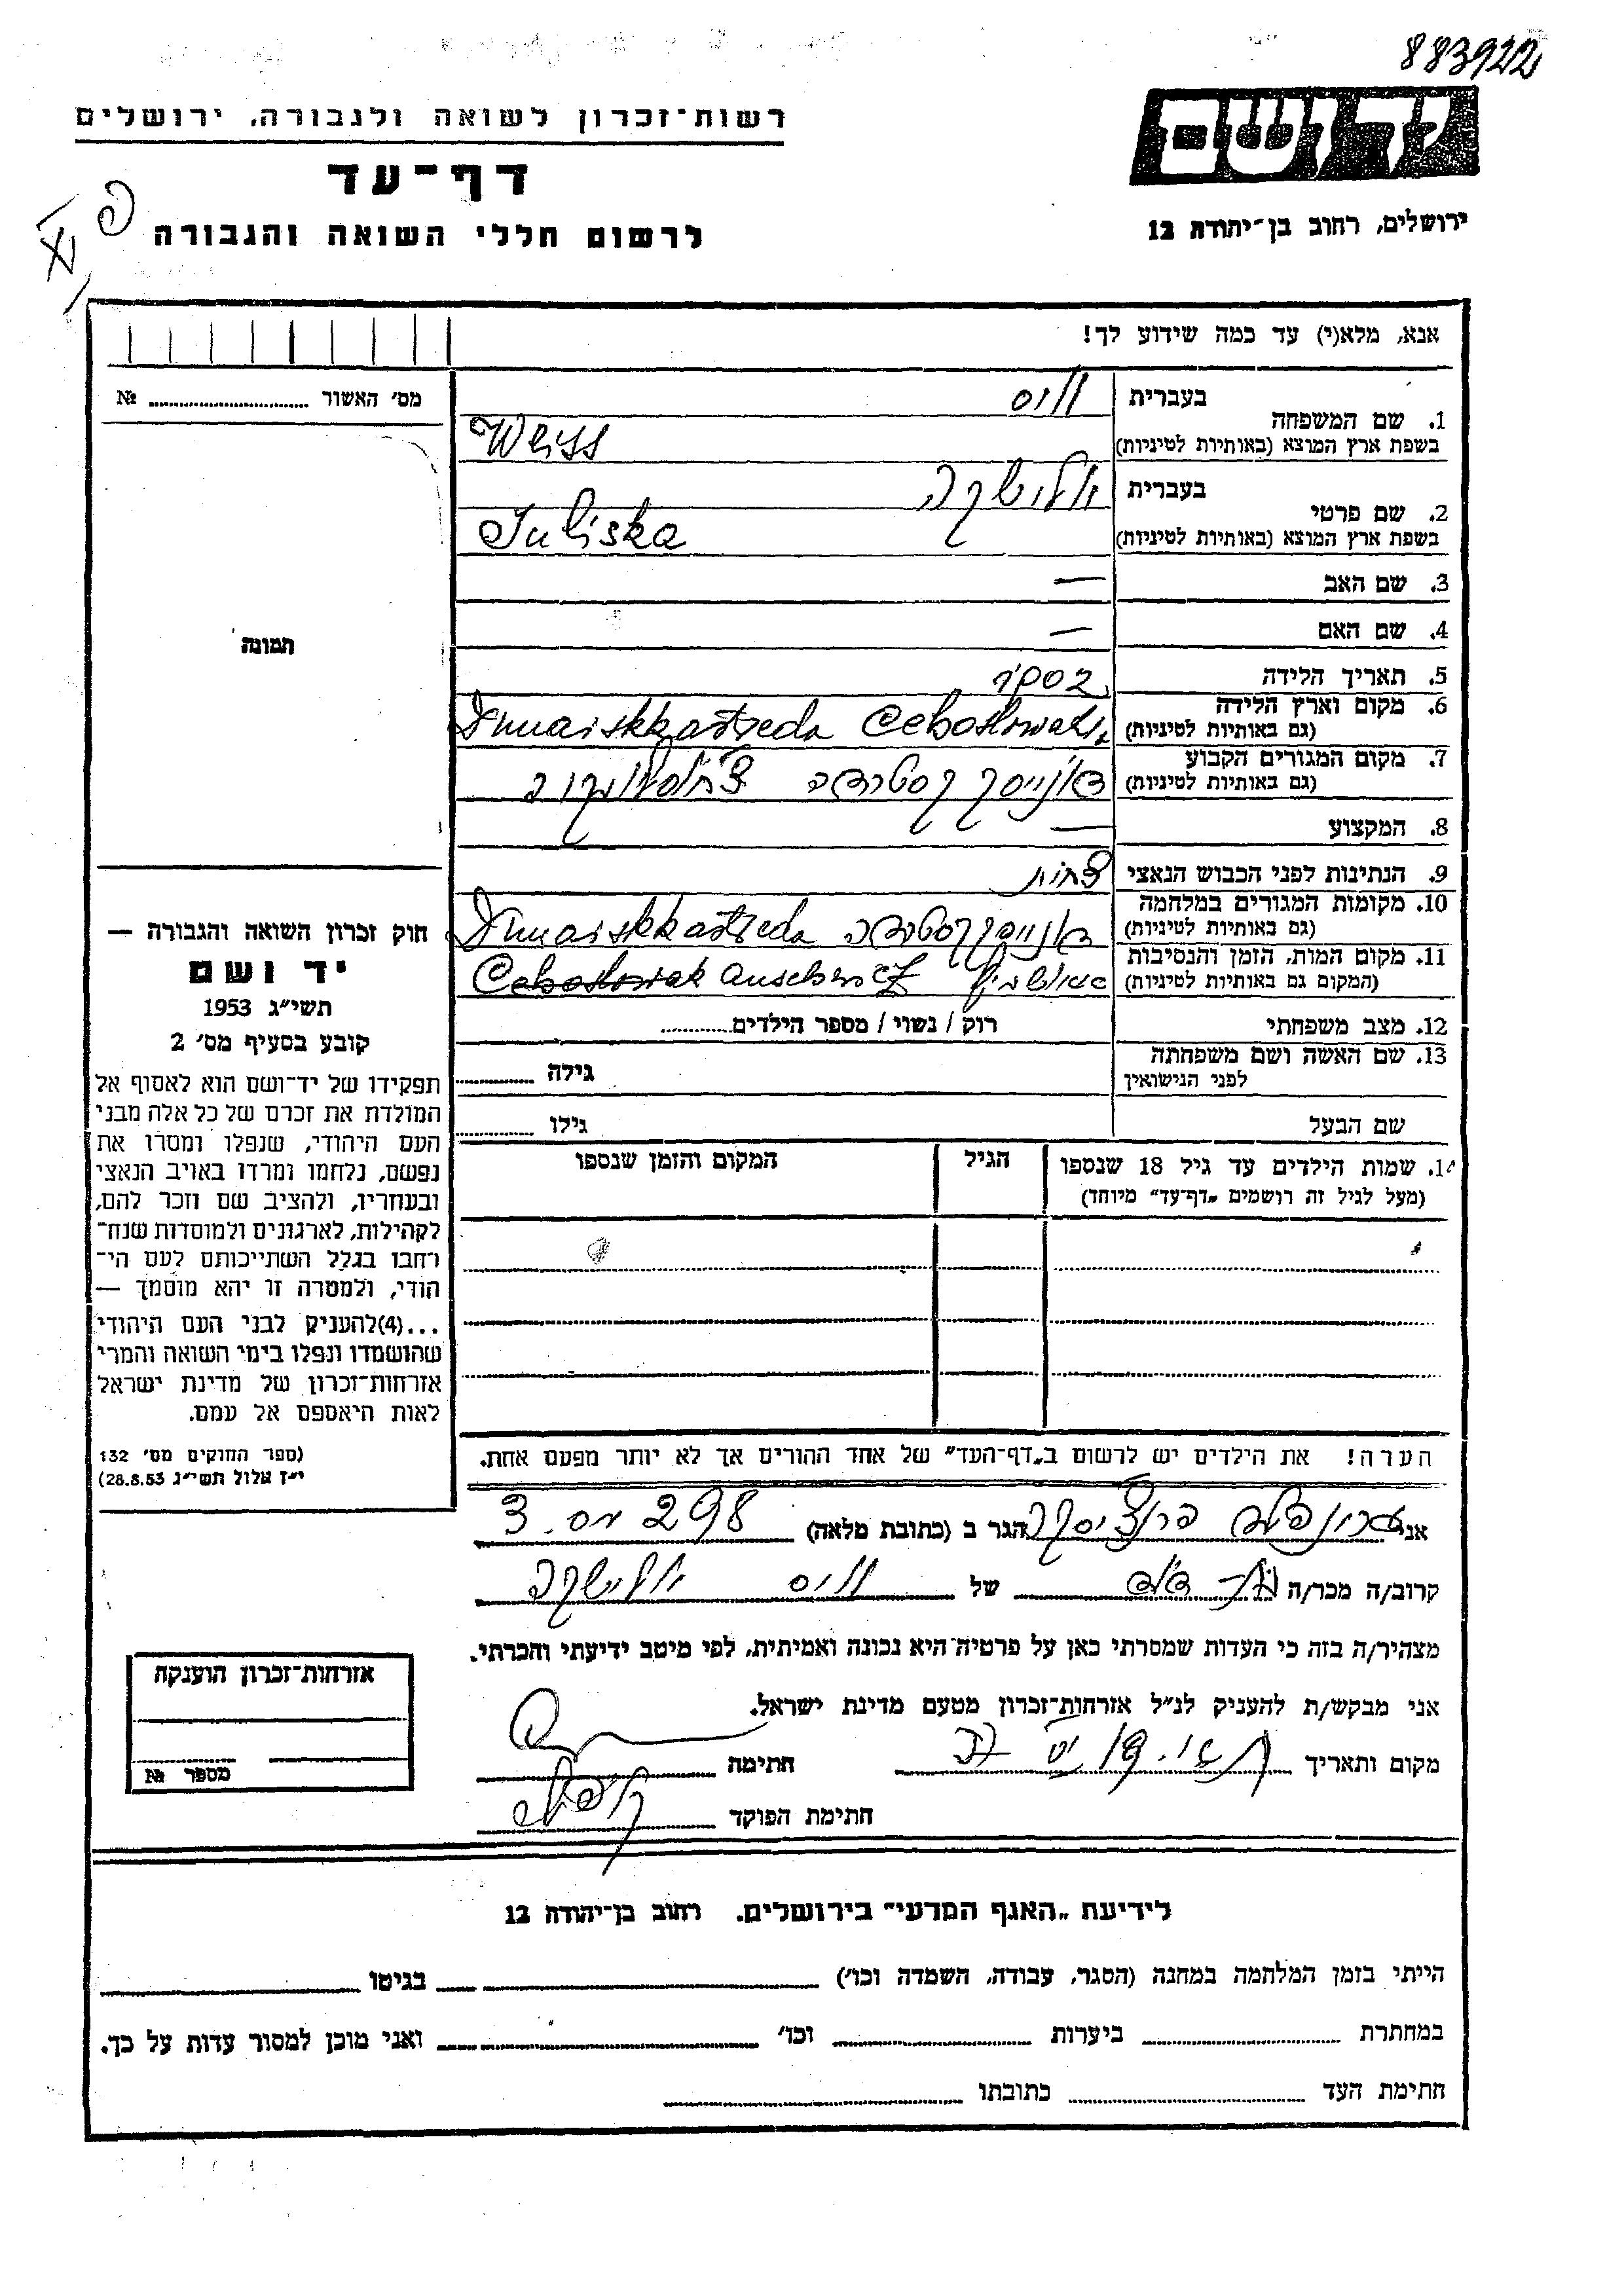 883922
יד ושם
רשות־זכרון לשואה ולגבורה, ירושלים
דף־עד
לרשום חללי השואה והגבורה
ירושלים, רחוב בן־יהודה 12
אנא, מלא(י) עד כמה שידוע לך!
מס׳ האשור № 
תמונה
1. שם המשפחה
בעברית
ווייס
בשפת ארץ המוצא (באותיות לטיניות)
Weiss
2. שם פרטי
בעברית
יולישקה
בשפת ארץ המוצא (באותיות לטיניות)
Juliska
3. שם האב —
4. שם האם —
5. תאריך הלידה
6. מקום וארץ הלידה
(גם באותיות לטיניות)
7. מקום המגורים הקבוע
(גם באותיות לטיניות)
8. המקצוע —
9. הנתינות לפני הכבוש הנאצי
10. מקומות המגורים במלחמה
(גם באותיות לטיניות)
11. מקום המות, הזמן והנסיבות
(המקום גם באותיות לטיניות)
12. מצב משפחתי רוק / נשוי / מספר הילדים
13. שם האשה ושם משפחתה
לפני הנישואין
גילה
שם הבעל גילו
14. שמות הילדים עד גיל 18 שנספו
(מעל לגיל זה רושמים „דף־עד״ מיוחד)
הגיל
המקום והזמן שנספו
חוק זכרון השואה והגבורה —
יד ושם
תשי״ג 1953
קובע בסעיף מס׳ 2
תפקידו של יד־ושם הוא לאסוף אל
המולדת את זכרם של כל אלה מבני
העם היהודי, שנפלו ומסרו את
נפשם, נלחמו ומרדו באויב הנאצי
ובעוזריו, ולהציב שם וזכר להם,
לקהילות, לארגונים ולמוסדות שנח־
רחבו בגלל השתייכותם לעם הי־
הודי, ולמטרה זו יהא מוסמך —
...(4)להעניק לבני העם היהודי
שהושמדו ונפלו בימי השואה והמרי
אזרחות־זכרון של מדינת ישראל
לאות היאספם אל עמם.
(ספר החוקים מס׳ 132
י״ז אלול תשי״ג 28.8.53)
הערה! את הילדים יש לרשום ב„דף־העד״ של אחד ההורים אך לא יותר מפעם אחת.
אני הגר ב (כתובת מלאה)
קרוב/ה מכר/ה של ווייס יולישקה
מצהיר/ה בזה כי העדות שמסרתי כאן על פרטיה היא נכונה ואמיתית, לפי מיטב ידיעתי והכרתי.
אני מבקש/ת להעניק לנ״ל אזרחות־זכרון מטעם מדינת ישראל.
מקום ותאריך חתימה
חתימת הפוקד
אזרחות־זכרון הוענקה
מספר №
לידיעת „האגף המדעי״ בירושלים. רחוב בן־יהודה 12
הייתי בזמן המלחמה במחנה (הסגר, עבודה, השמדה וכו׳) בגיטו
במחתרת ביערות וכו׳ ואני מוכן למסור עדות על כך.
חתימת העד כתובתו